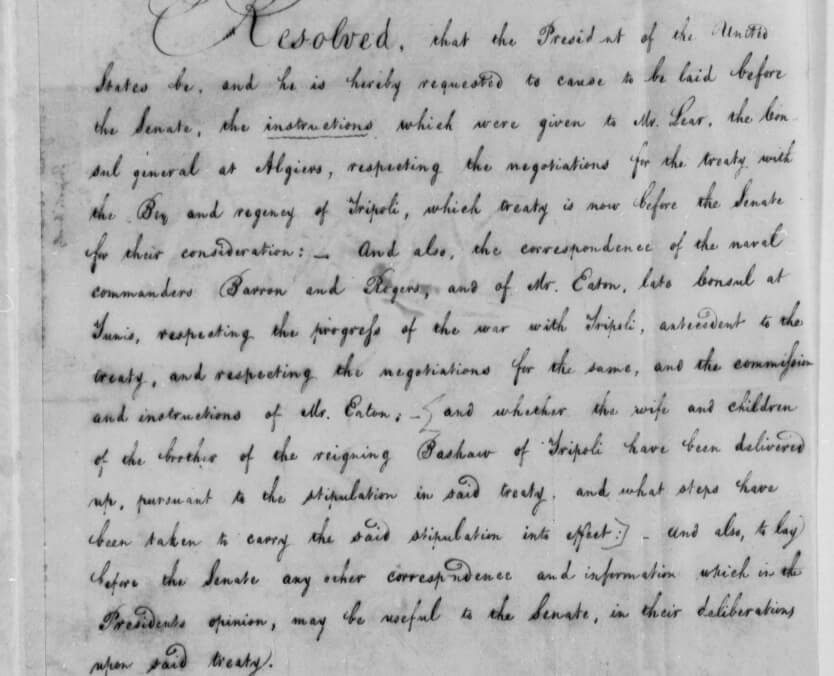 Resolved, that the President of the United
States be, and he is hereby requested to cause to be laid before
the Senate, the instructions which were given to Mr. Lear, the Con-
sul general at Algiers, respecting the negotiations for the treaty with
the Bey and regency of Tripoli, which treaty is now before the Senate
for their consideration: — And also, the correspondence of the naval
commanders Barron and Rogers, and of Mr. Eaton, late Consul at
Tunis, respecting the progress of the war with Tripoli, antecedent to the
treaty, and respecting the negotiations for the same, and the commission
and instructions of Mr. Eaton; — [and whether the wife and children
of the brother of the reigning Bashaw of Tripoli have been delivered
up, pursuant to the stipulation in said treaty, and what steps have
been taken to carry the said stipulation into effect:] — And also, to lay
before the Senate any other correspondence and information which in the
Presidents opinion, may be useful to the Senate, in their deliberations
upon said treaty.